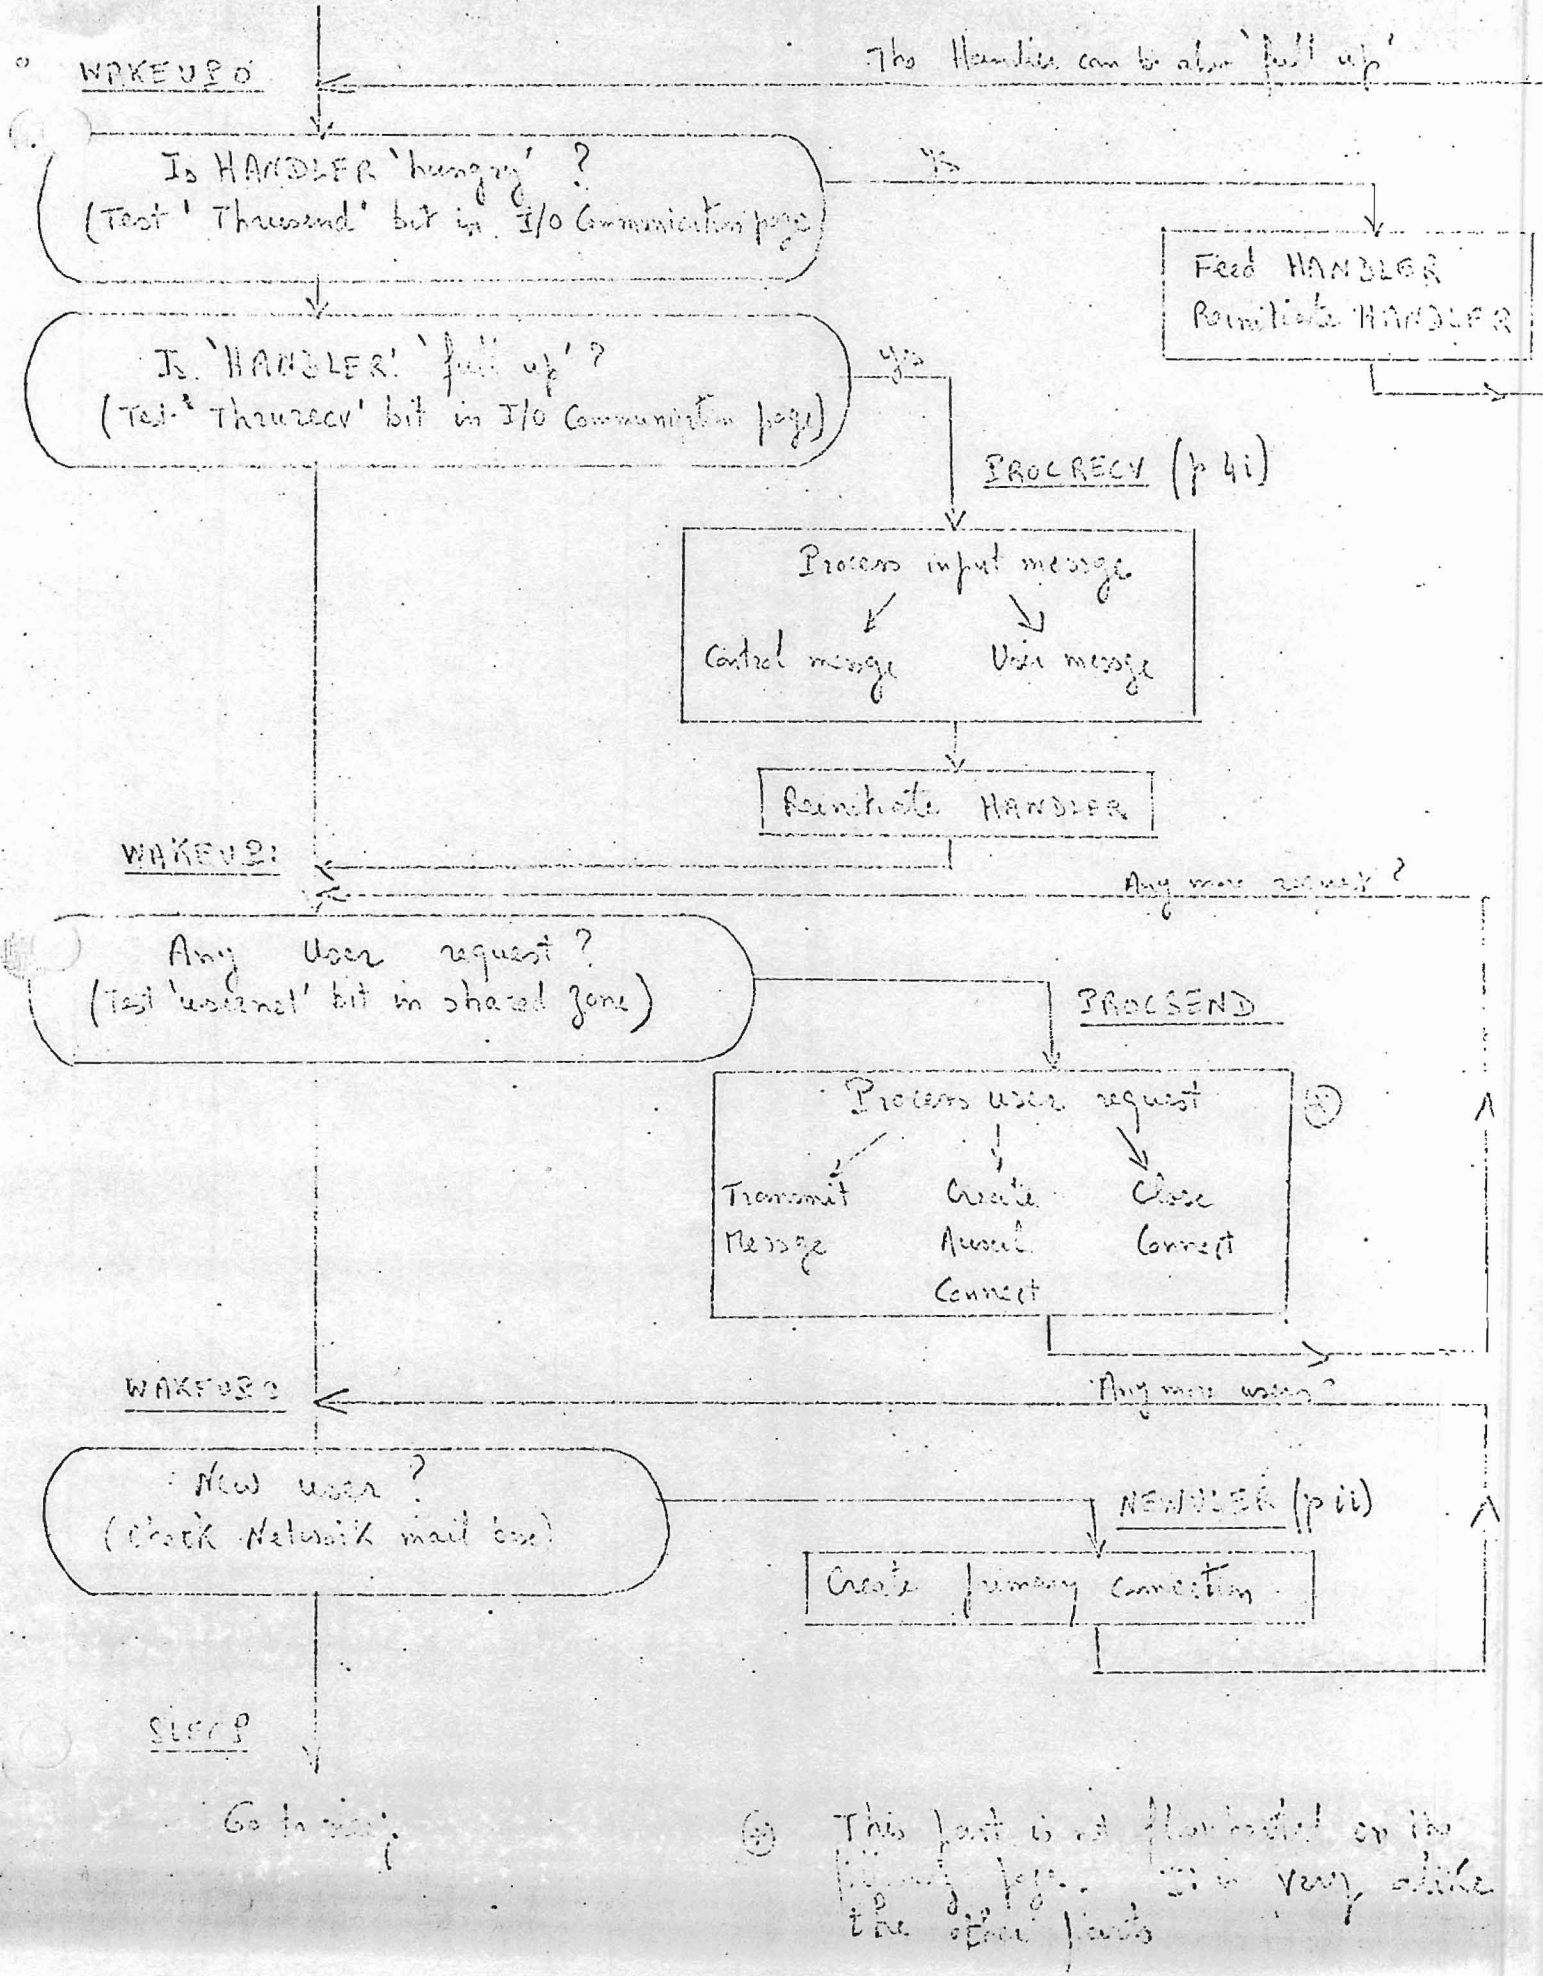 WAKEUP0
The Handler can be also 'full up'
Is HANDLER 'hungry' ?
(Test 'Thrusend' bit in I/O Communication page
yes
Feed HANDLER
Reinitiate HANDLER
Is 'HANDLER' 'full up' ?
(Test 'Thrurecv' bit in I/O Communication page)
yes
PROCRECV (p 4i)
Process input messge
Control messge
User messge
Reinitiate HANDLER
WAKEUP1
Any more request ?
Any User request ?
(Test 'usernet' bit in shared zone)
PROCSEND
Process user request
Transmit
Messge
Create
Auxil.
Connect
Close
Connect
WAKEUP2
Any more users ?
New user ?
(Check Network mail box)
NEWUSER (p ii)
Create primary connection
SLEEP
Go to sleep
This part is not flowcharted on the
following page. It is very alike
the other parts